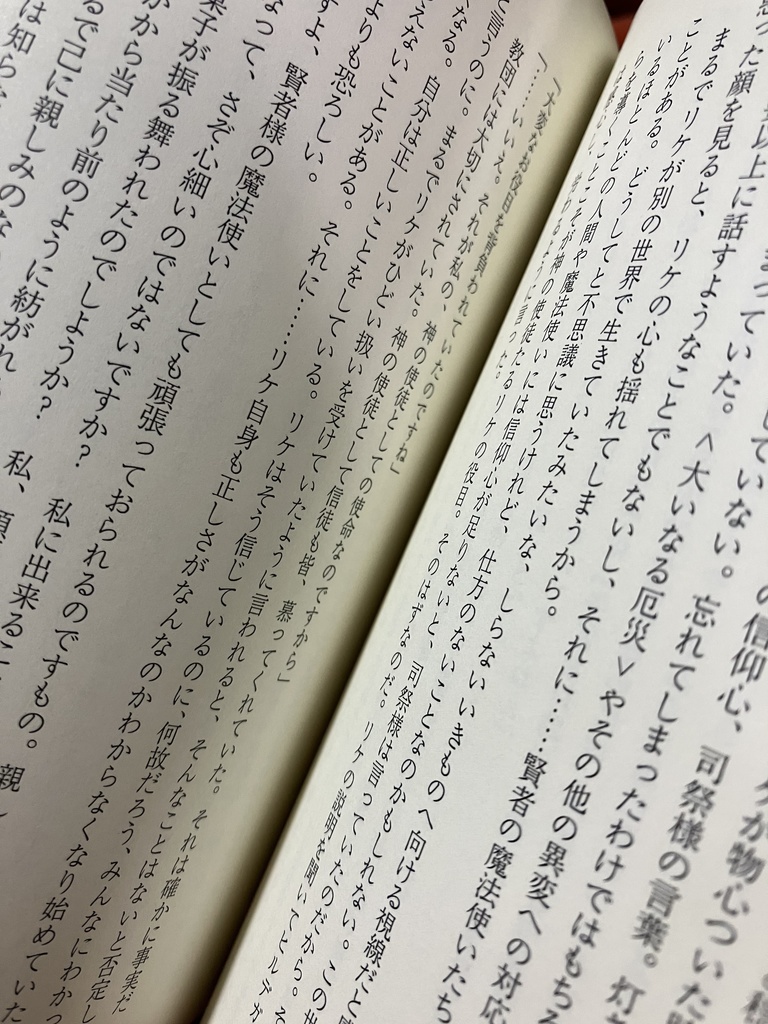 ケが物心ついた
の信仰心、司祭様の言葉。灯
していない。忘れてしまったわけではもちろ
まっていた。<大いなる厄災>やその他の異変への対応
以上に話すようなことでもないし、それに……賢者の魔法使いたち
た顔を見ると、リケの心も揺れてしまうから。
まるでリケが別の世界で生きていたみたいな、しらないいきものへ向ける視線だと
ことがある。どうしてと不思議に思うけれど、仕方のないことなのかもしれない。この世
いるほとんどの人間や魔法使いには信仰心が足りないと、司祭様は言っていたのだから。そ
らを導くことこそが神の使徒たるリケの役目。そのはずなのだ。リケの説明を聞いてヒルデガ
わるように言った。
「大変なお役目を背負われていたのですね」
「……いいえ。それが私の、神の使徒としての使命なのですから」
教団には大切にされていた。神の使徒として信徒も皆、慕ってくれていた。それは確かに事実だ
と言うのに。まるでリケがひどい扱いを受けていたように言われると、そんなことはないと否定し
くなる。自分は正しいことをしている。リケはそう信じているのに、何故だろう、みんなにわかっ
えないことがある。それに……リケ自身も正しさがなんなのかわからなくなり始めていた
よりも恐ろしい。
すよ、賢者様の魔法使いとしても頑張っておられるのですもの。親
なって、さぞ心細いのではないですか? 私に出来るこ
菓子が振る舞われたのでしょうか? 私、
から当たり前のように紡がれ
るで己に親しみのな
は知らな